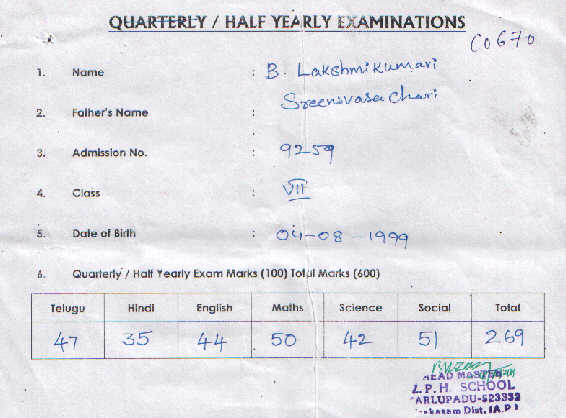 QUARTERLY / HALF YEARLY EXAMINATIONS
C0670
1. Name : B. Lakshmikumari
2. Father's Name : Sreenivasa Chari
3. Admission No. : 9259
4. Class : VII
5. Date of Birth : 04-08-1999
6. Quarterly / Half Yearly Exam Marks (100) Total Marks (600)
Telugu Hindi English Maths Science Social Total
47 35 44 50 42 51 269
HEAD MASTER
Z.P.H SCHOOL
ARLUPADU-523332
Dist. (A.P)